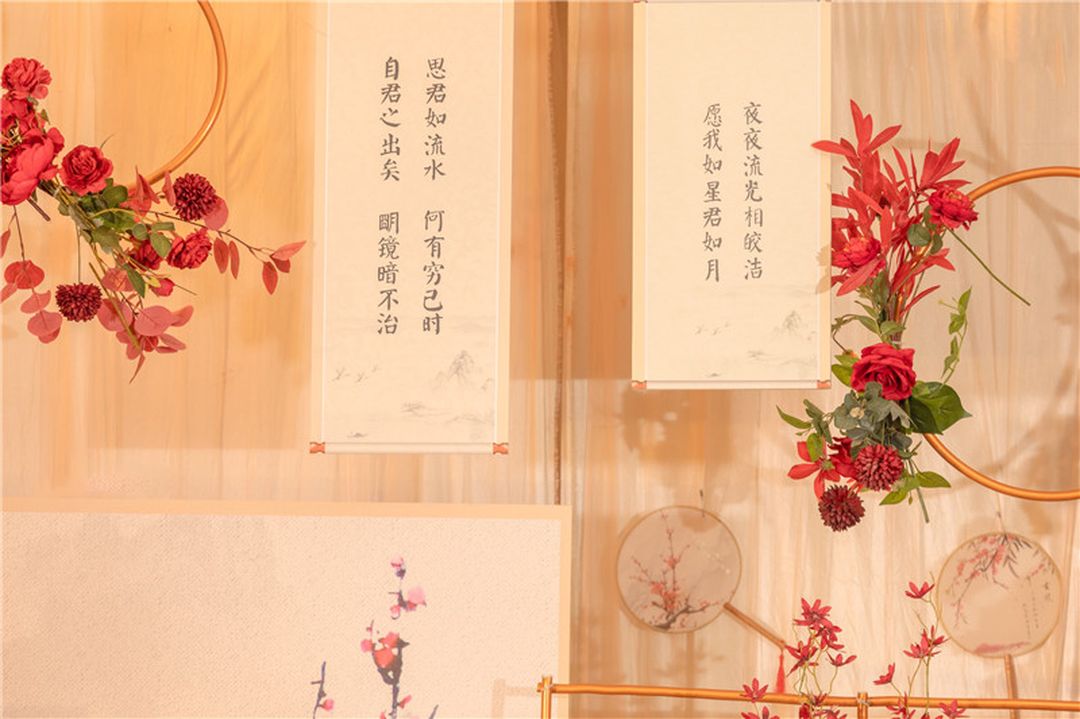 自君之出矣 明镜暗不治
思君如流水 何有穷已时
愿我如星君如月
夜夜流光相皎洁